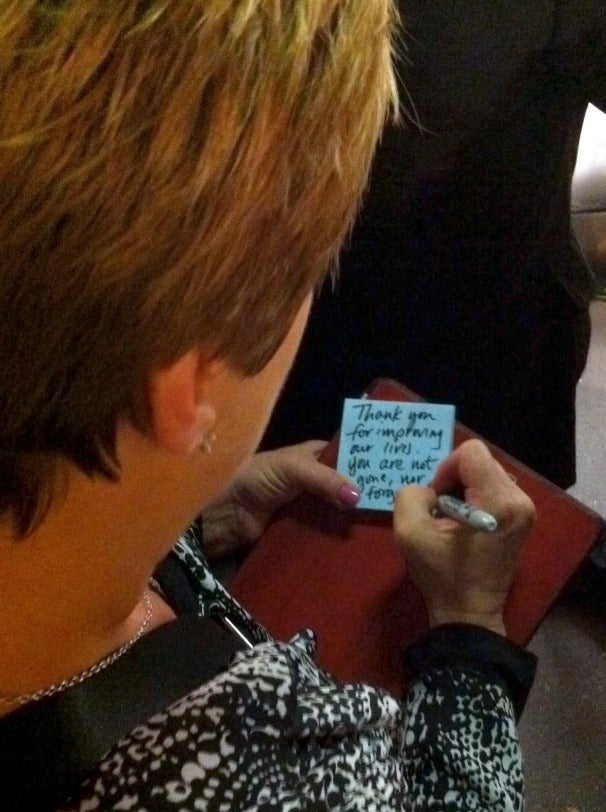 Thank you
for improving
our lives.
you are not
gone, nor
forg